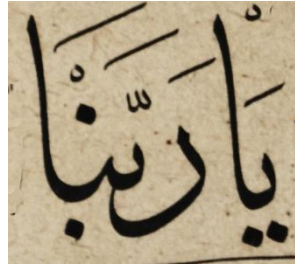 يَاْ رَبَّنَاْ